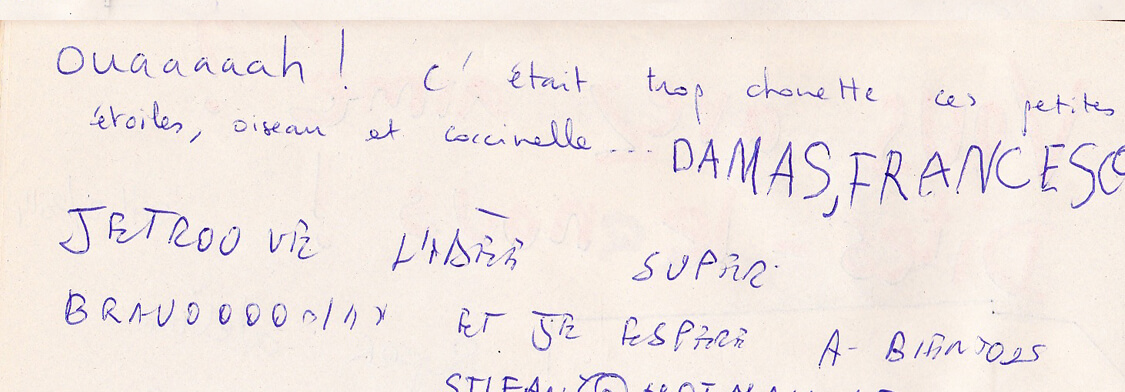 Ouaaaaah ! C'était trop chouette ces petites
étoiles, oiseau et coccinelle... DAMAS, FRANCESCO
JETROO VE L'IDÉE SUPER.
BRAVOOOO ET JE ESPERE A-BIENTO